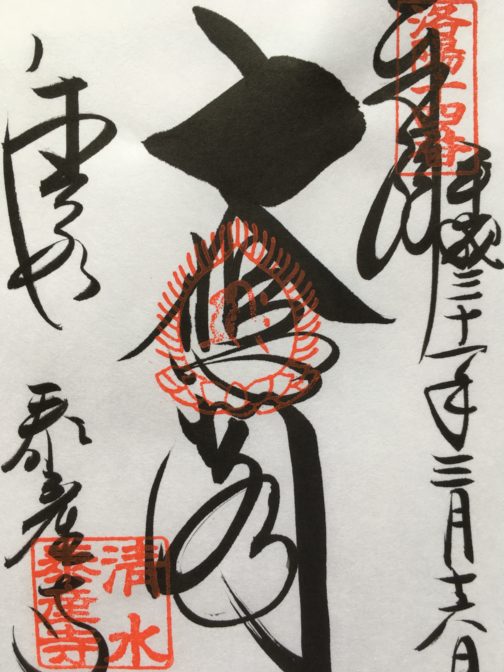 洛陽十四番
奉拝
平成三十一年三月十六日
大悲閣
泰産寺
清水
泰産寺